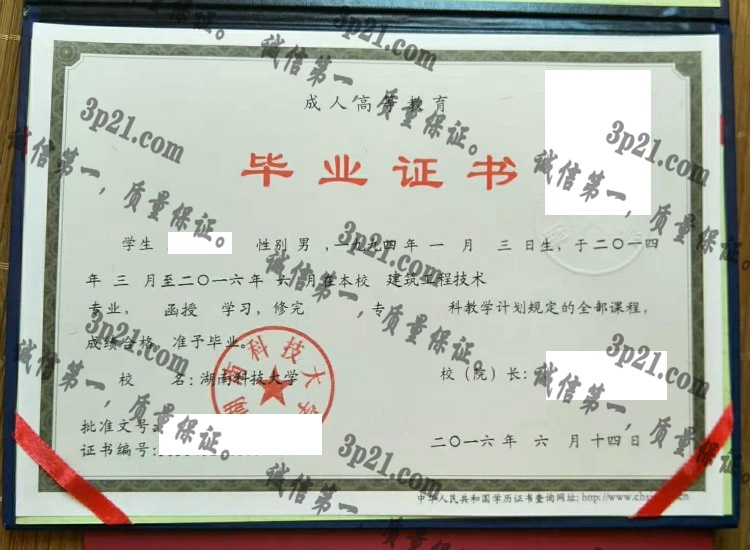 成人高等教育
毕业证书
学生 性别 男 ，一九九四 年 一 月 三 日生，于二〇一四
年 三 月至二〇一六年 六 月在本校 建筑工程技术
专业， 函授 学习，修完 专 科教学计划规定的全部课程，
成绩合格，准予毕业。
校 名：湖南科技大学
校（院）长：
批准文号：
证书编号：
二〇一六年 六 月十四日
中华人民共和国学历证书查询网址：http://www.chsi
湖南科技大学
3p21.com
诚信第一，质量保证。
3p21.com
诚信第一，质量保证。
3p21.com
诚信第一，质量保证。
3p21.com
诚信第一，质量保证。
3p21.com
诚信第一，质量保证。
3p21.com
诚信第一，质量保证。
3p21.com
诚信第一，质量保证。
3p21.com
诚信第一，质量保证。